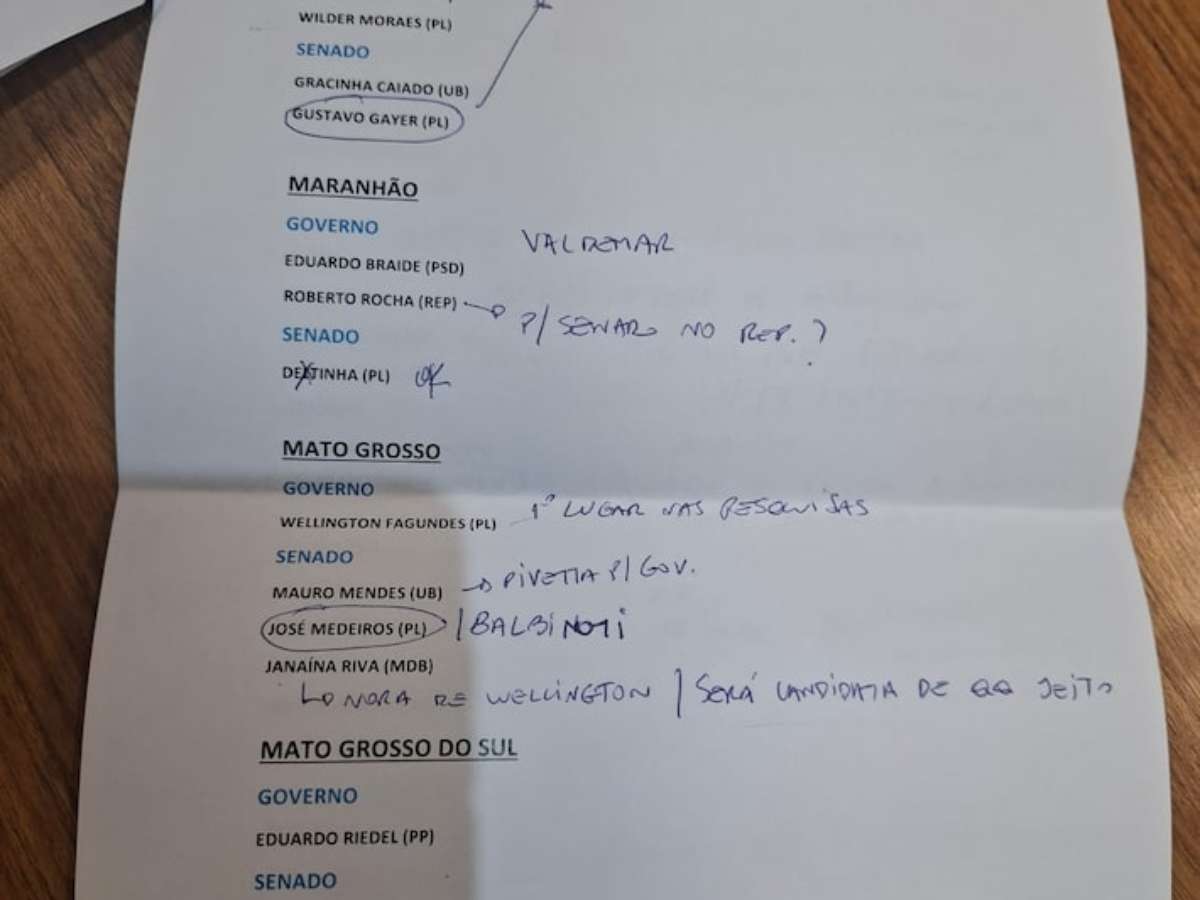 WILDER MORAES (PL)
SENADO
GRACINHA CAIADO (UB)
GUSTAVO GAYER (PL)
MARANHÃO
GOVERNO
VALDEMAR
EDUARDO BRAIDE (PSD)
ROBERTO ROCHA (REP) → P/ SENADO NO REP. ?
SENADO
DETINHA (PL) OK
MATO GROSSO
GOVERNO
WELLINGTON FAGUNDES (PL) 1º LUGAR NAS PESQUISAS
SENADO
MAURO MENDES (UB) → PIVETTA P/ GOV.
JOSÉ MEDEIROS (PL) / BALBINOTI
JANAÍNA RIVA (MDB)
↳ NORA DE WELLINGTON / SERÁ CANDIDATA DE QQ JEITO
MATO GROSSO DO SUL
GOVERNO
EDUARDO RIEDEL (PP)
SENADO